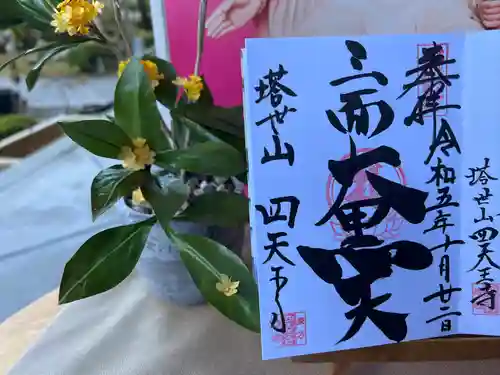 奉拝
令和五年十月廿二日
三面大黒天
塔世山
四天王寺
塔世山四天王寺